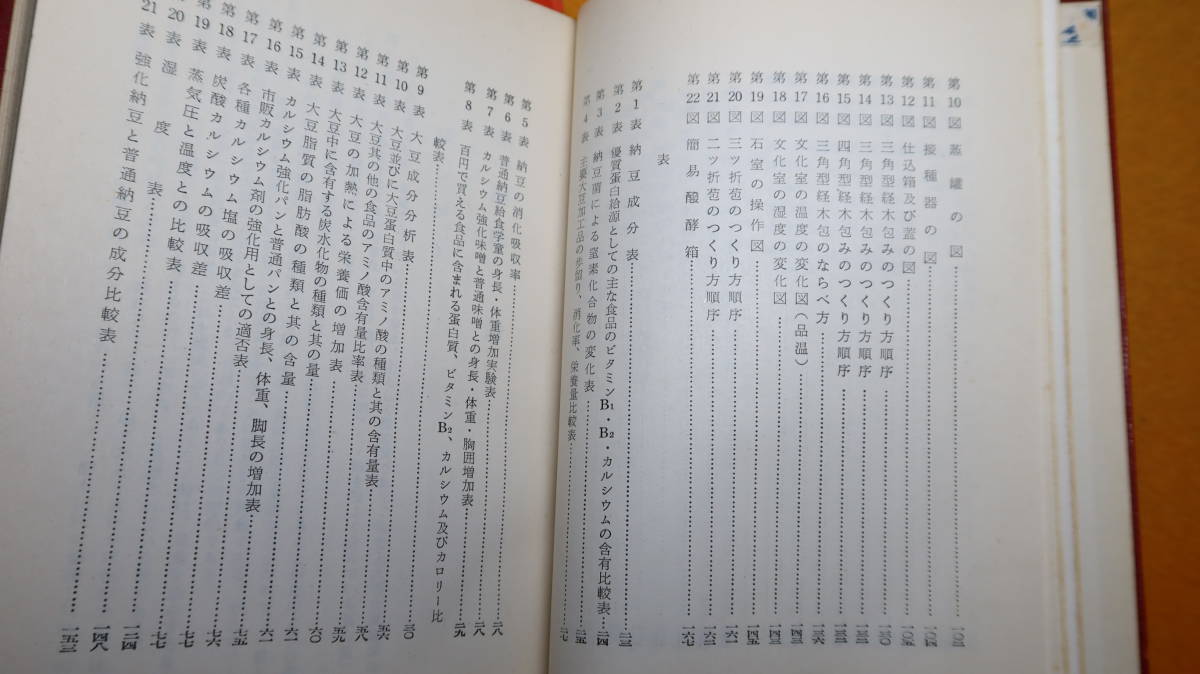 第10図 蒸罐の図……一〇三
第11図 接種器の図……一〇四
第12図 仕込箱及び蓋の図……一〇五
第13図 三角型経木包みのつくり方順序……一三〇
第14図 三角型経木包みのつくり方順序……一三二
第15図 四角型経木包みのつくり方順序……一三三
第16図 三角型経木包みのならべ方……一三六
第17図 文化室の温度の変化図(品温)……一四三
第18図 文化室の湿度の変化図……一四三
第19図 石室の操作図……一四五
第20図 三ツ折苞のつくり方順序……一六一
第21図 二ツ折苞のつくり方順序……一六二
第22図 簡易醗酵箱……一六七
表
第1表 納豆成分表……二三
第2表 優質蛋白給源としての主な食品のビタミンB1・B2・カルシウムの含有比較表……二四
第3表 納豆菌による窒素化合物の変化表……二五
第4表 主要大豆加工品の歩留り、消化率、栄養量比較表……二七
第5表 納豆の消化吸収率……二八
第6表 普通納豆給食学童の身長・体重増加実験表……二八
第7表 カルシウム強化味噌と普通味噌との身長・体重・胸囲増加表……二九
第8表 百円で買える食品に含まれる蛋白質、ビタミンB2、カルシウム及びカロリー比
較表……三〇
第9表 大豆成分分析表……五六
第10表 大豆並びに大豆蛋白質中のアミノ酸の種類と其の含有量表……五八
第11表 大豆其の他の食品のアミノ酸含有量比率表……五九
第12表 大豆の加熱による栄養価の増加表……六〇
第13表 大豆中に含有する炭水化物の種類と其の量……六一
第14表 大豆脂質の脂肪酸の種類と其の含量……六一
第15表 カルシウム強化パンと普通パンとの身長、体重、脚長の増加表……七五
第16表 市販カルシウム剤の強化用としての適否表……七六
第17表 各種カルシウム塩の吸収差……七七
第18表 炭酸カルシウムの吸収差……七七
第19表 蒸気圧と温度との比較表……一二四
第20表 湿度表……一四八
第21表 強化納豆と普通納豆の成分比較表……一五三